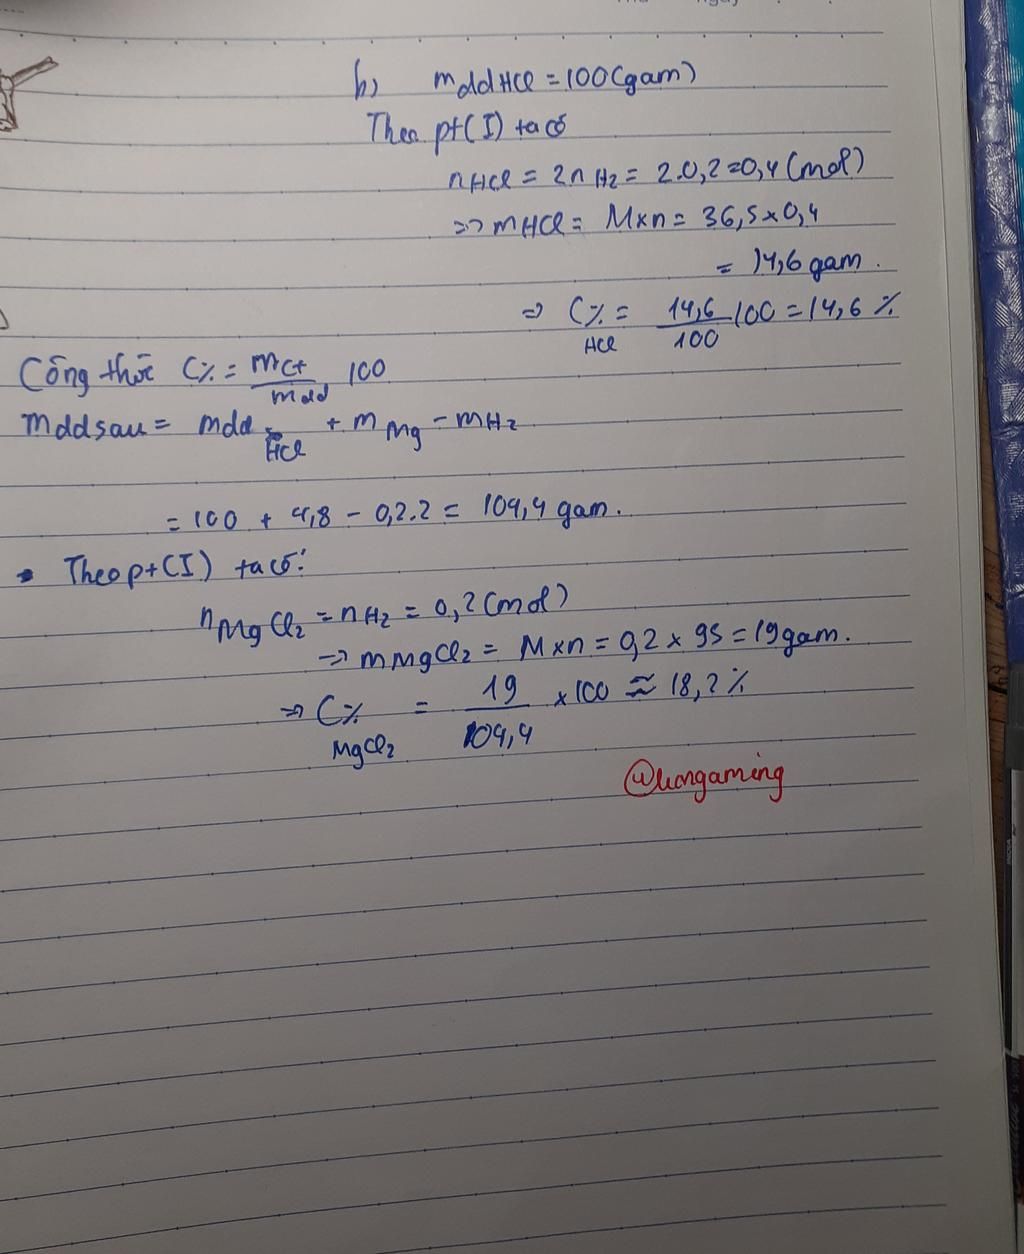 b) mddHCl = 100 (gam)
Theo pt (I) ta có
nHCl = 2nH2 = 2.0,2 = 0,4 (mol)
=> mHCl = M×n = 36,5×0,4
= 14,6 gam.
=> C%HCl = 14,6/100 100 = 14,6 %
Công thức C% = mct/mdd 100
mddsau = mddHCl + mMg - mH2
= 100 + 4,8 - 0,2.2 = 104,4 gam.
• Theo pt (I) ta có:
nMgCl2 = nH2 = 0,2 (mol)
=> mMgCl2 = M×n = 0,2 × 95 = 19 gam.
=> C%MgCl2 = 19/104,4 × 100 ≈ 18,2 %